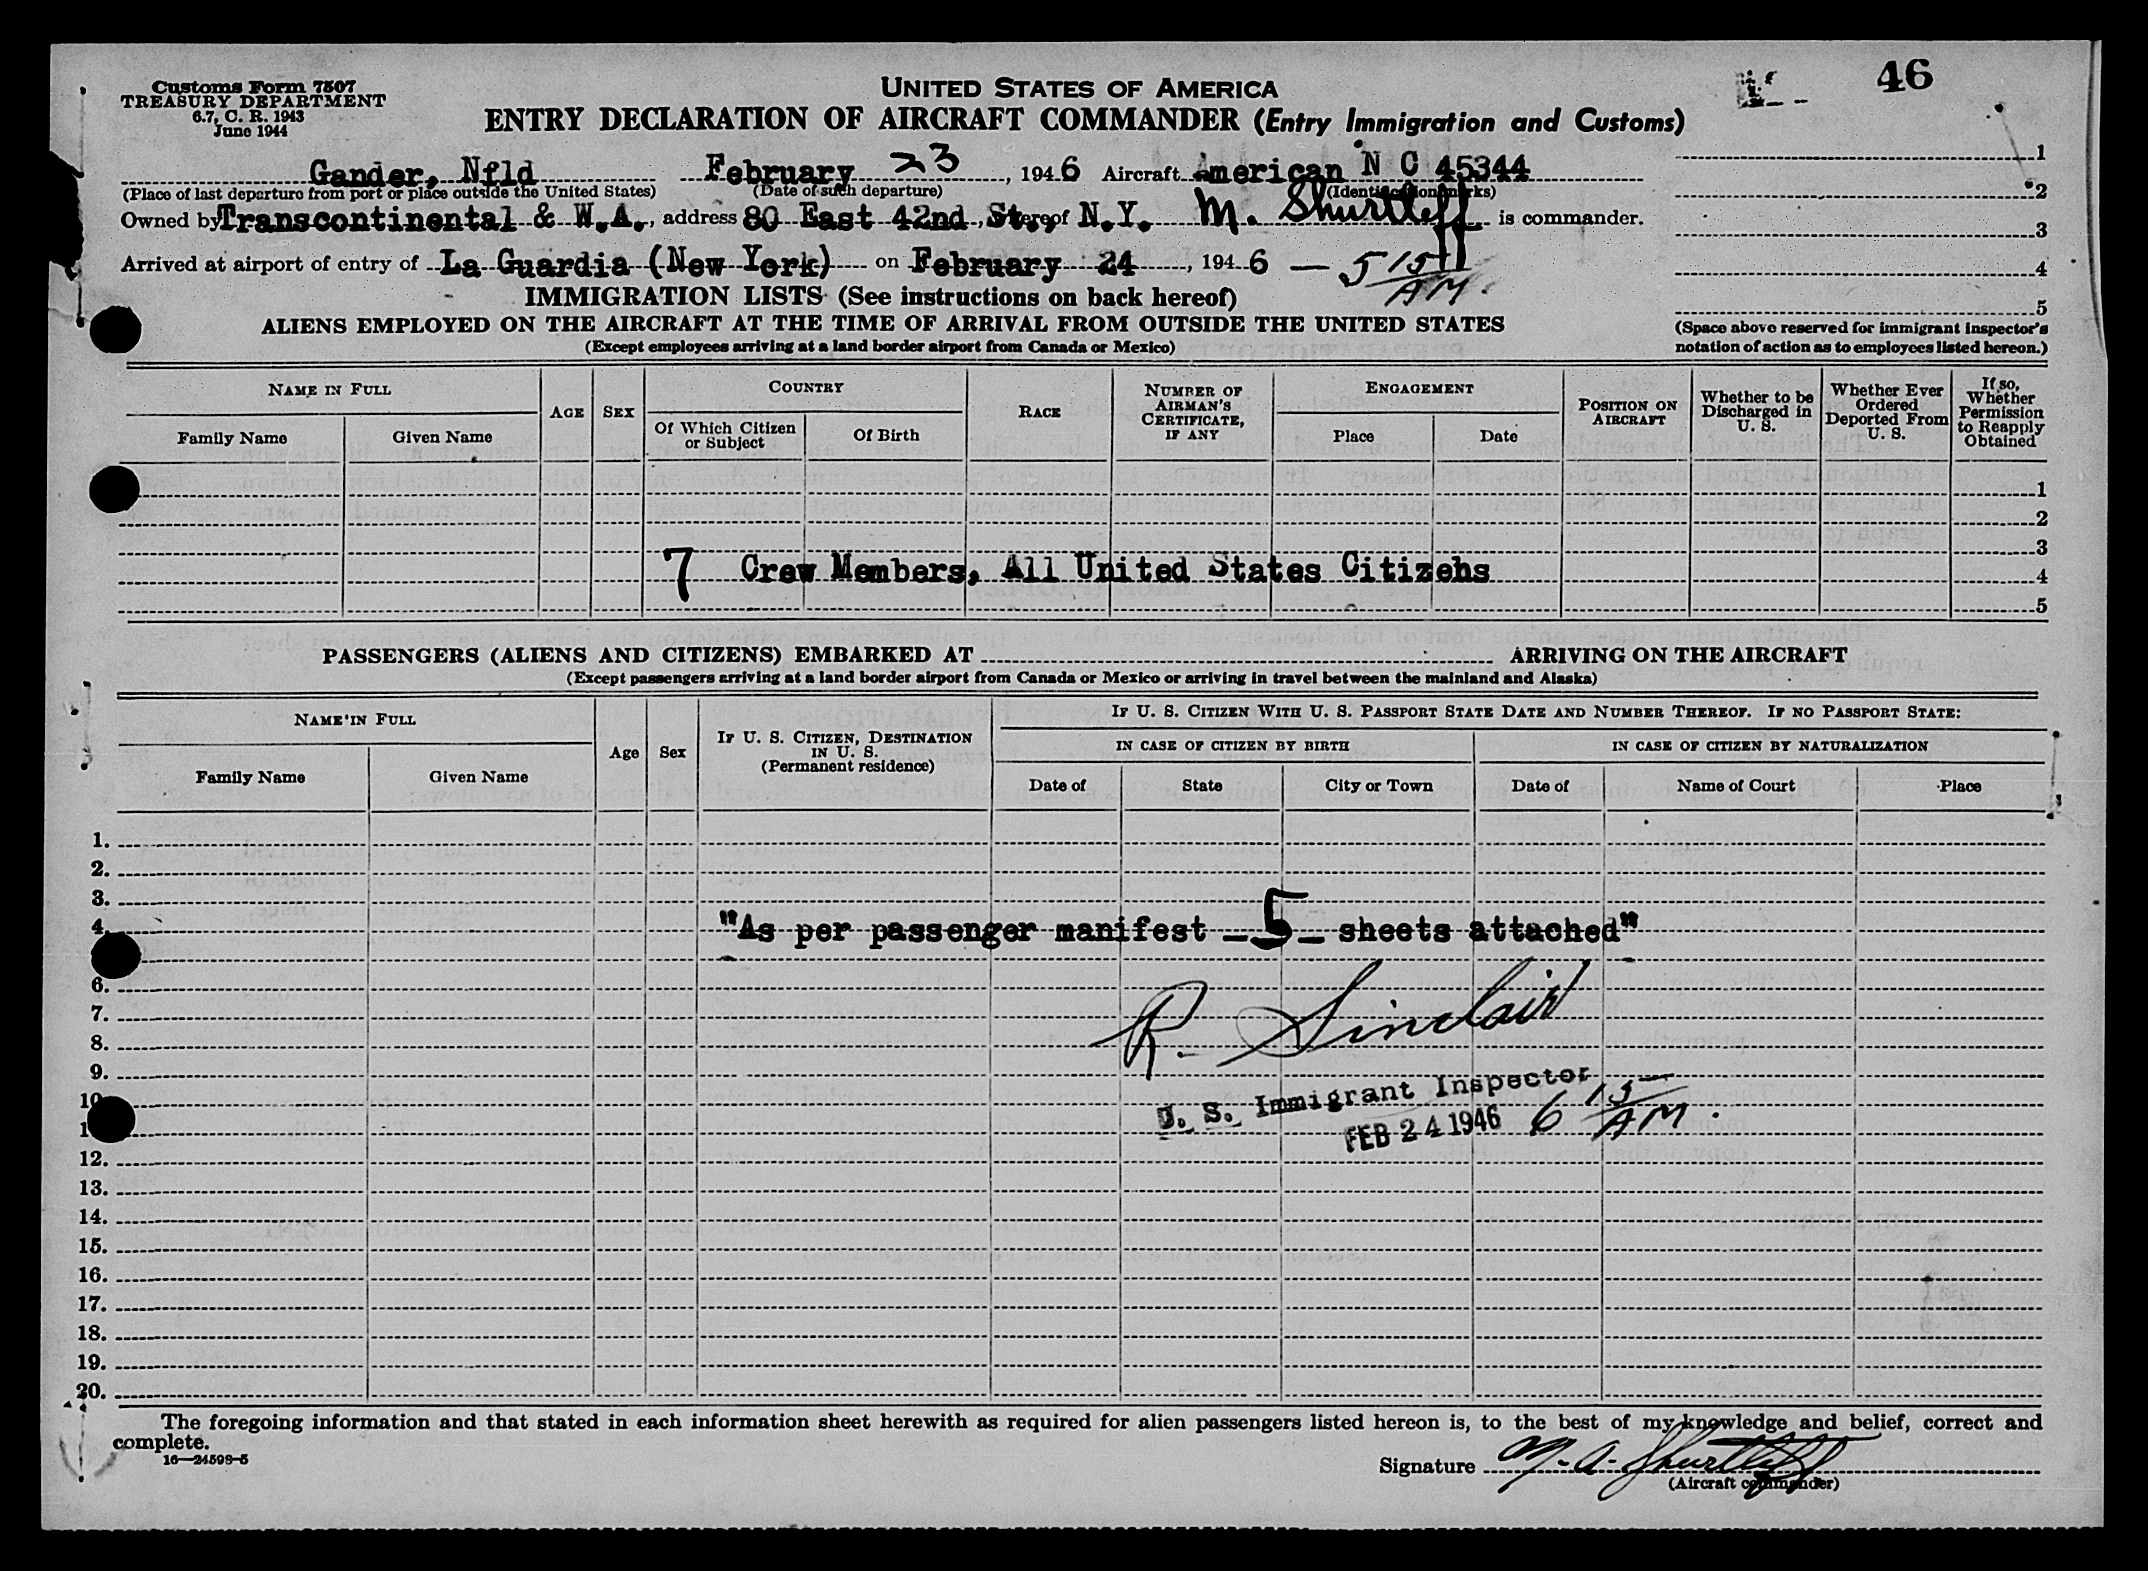 Customs Form 7507
TREASURY DEPARTMENT
6.7, C. R. 1943
June 1944
UNITED STATES OF AMERICA
46
ENTRY DECLARATION OF AIRCRAFT COMMANDER (Entry Immigration and Customs)
Gander, Nfld February 23, 1946 Aircraft American N C 45344
(Place of last departure from port or place outside the United States) (Date of such departure) (Identification marks)
Owned by Transcontinental & W.A., address 80 East 42nd St., N.Y. M. Shurtleff is commander.
Arrived at airport of entry of La Guardia (New York) on February 24, 1946 — 5 15 AM.
1
2
3
4
5
(Space above reserved for immigrant inspector's
notation of action as to employees listed hereon.)
IMMIGRATION LISTS (See instructions on back hereof)
ALIENS EMPLOYED ON THE AIRCRAFT AT THE TIME OF ARRIVAL FROM OUTSIDE THE UNITED STATES
(Except employees arriving at a land border airport from Canada or Mexico)
NAME IN FULL
Family Name
Given Name
AGE
SEX
COUNTRY
Of Which Citizen
or Subject
Of Birth
RACE
NUMBER OF
AIRMAN'S
CERTIFICATE,
IF ANY
ENGAGEMENT
Place
Date
POSITION ON
AIRCRAFT
Whether to be
Discharged in
U. S.
Whether Ever
Ordered
Deported From
U. S.
If so,
Whether
Permission
to Reapply
Obtained
1
2
3
7 Crew Members, All United States Citizens
4
5
PASSENGERS (ALIENS AND CITIZENS) EMBARKED AT ARRIVING ON THE AIRCRAFT
(Except passengers arriving at a land border airport from Canada or Mexico or arriving in travel between the mainland and Alaska)
NAME IN FULL
Family Name
Given Name
Age
Sex
IF U. S. CITIZEN, DESTINATION
IN U. S.
(Permanent residence)
IF U. S. CITIZEN WITH U. S. PASSPORT STATE DATE AND NUMBER THEREOF. IF NO PASSPORT STATE:
IN CASE OF CITIZEN BY BIRTH
IN CASE OF CITIZEN BY NATURALIZATION
Date of
State
City or Town
Date of
Name of Court
Place
1.
2.
3.
4. "As per passenger manifest - 5 - sheets attached"
6.
7.
R. Sinclair
8.
9.
10
U. S. Immigrant Inspector
1
FEB 24 1946 6 15 AM.
12.
13.
14.
15.
16.
17.
18.
19.
20.
The foregoing information and that stated in each information sheet herewith as required for alien passengers listed hereon is, to the best of my knowledge and belief, correct and
complete.
16—24598-5
Signature M. A. Shurtleff
(Aircraft commander)